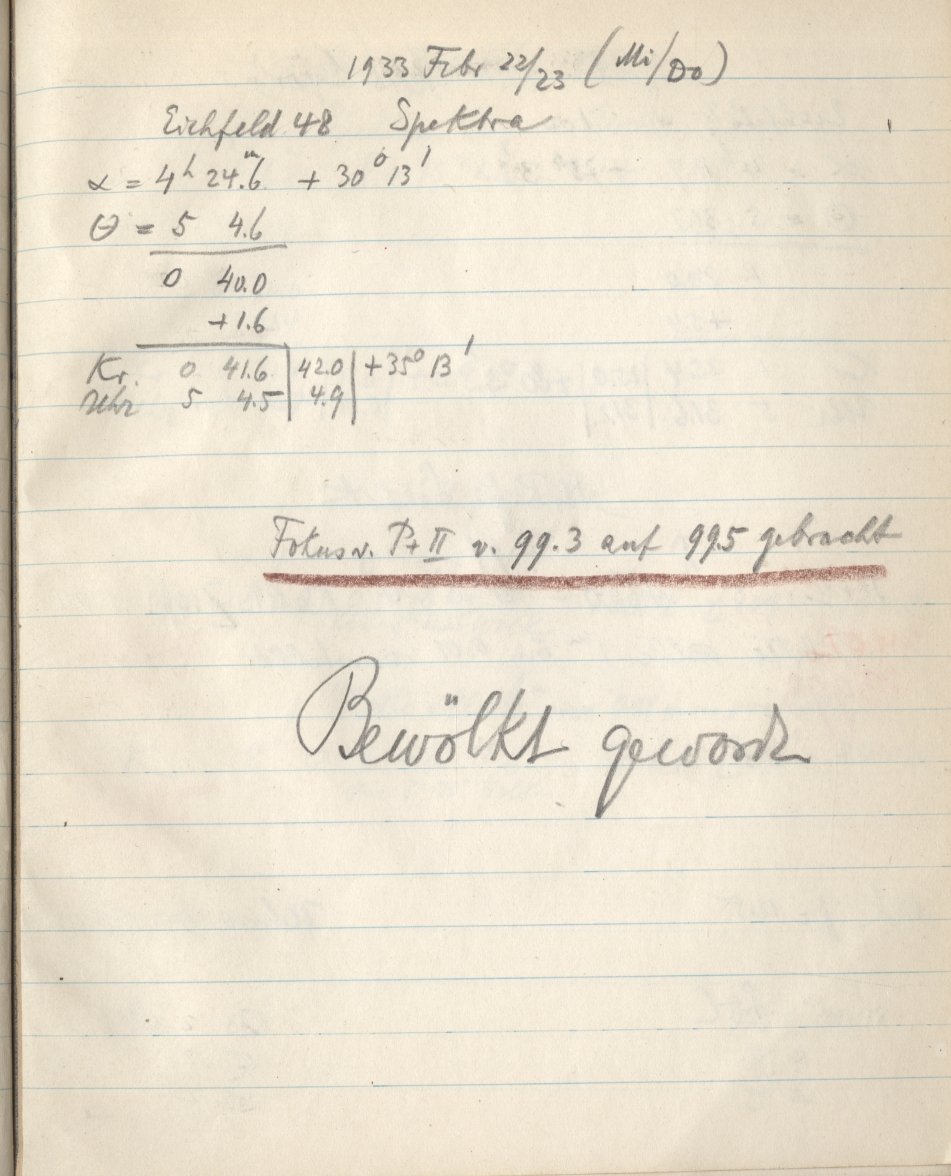 1933 Febr 22/23 (Mi/Do)
Eichfeld 48 Spektra
α = 4h 24.m6 + 30° 13'
θ = 5 4.6
0 40.0
+1.6
Kr. 0 41.6 | 42.0 | +35° 13'
Uhr 5 4.5 | 4.9
Fokus v. P+II v. 99.3 auf 99.5 gebracht
Bewölkt geword